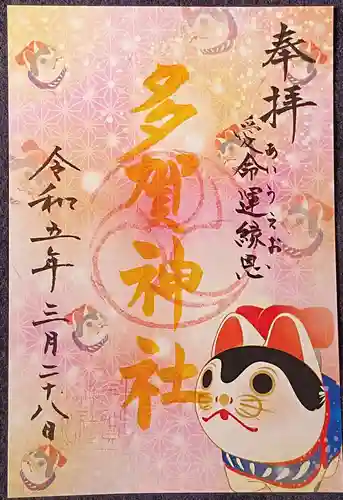 奉拝
愛命運縁恩
あいうえお
多賀神社
令和五年三月二十八日